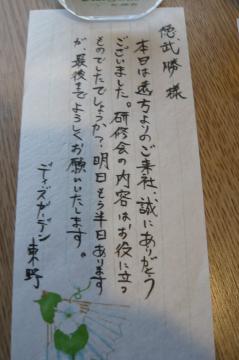 徳武勝様
本日は遠方よりのご来社、誠にありがとう
ございました。研修会の内容はお役に立つ
ものでしたでしょうか？明日もう半日あります
が、最後までよろしくお願いいたします。
ディズガーデン
東野